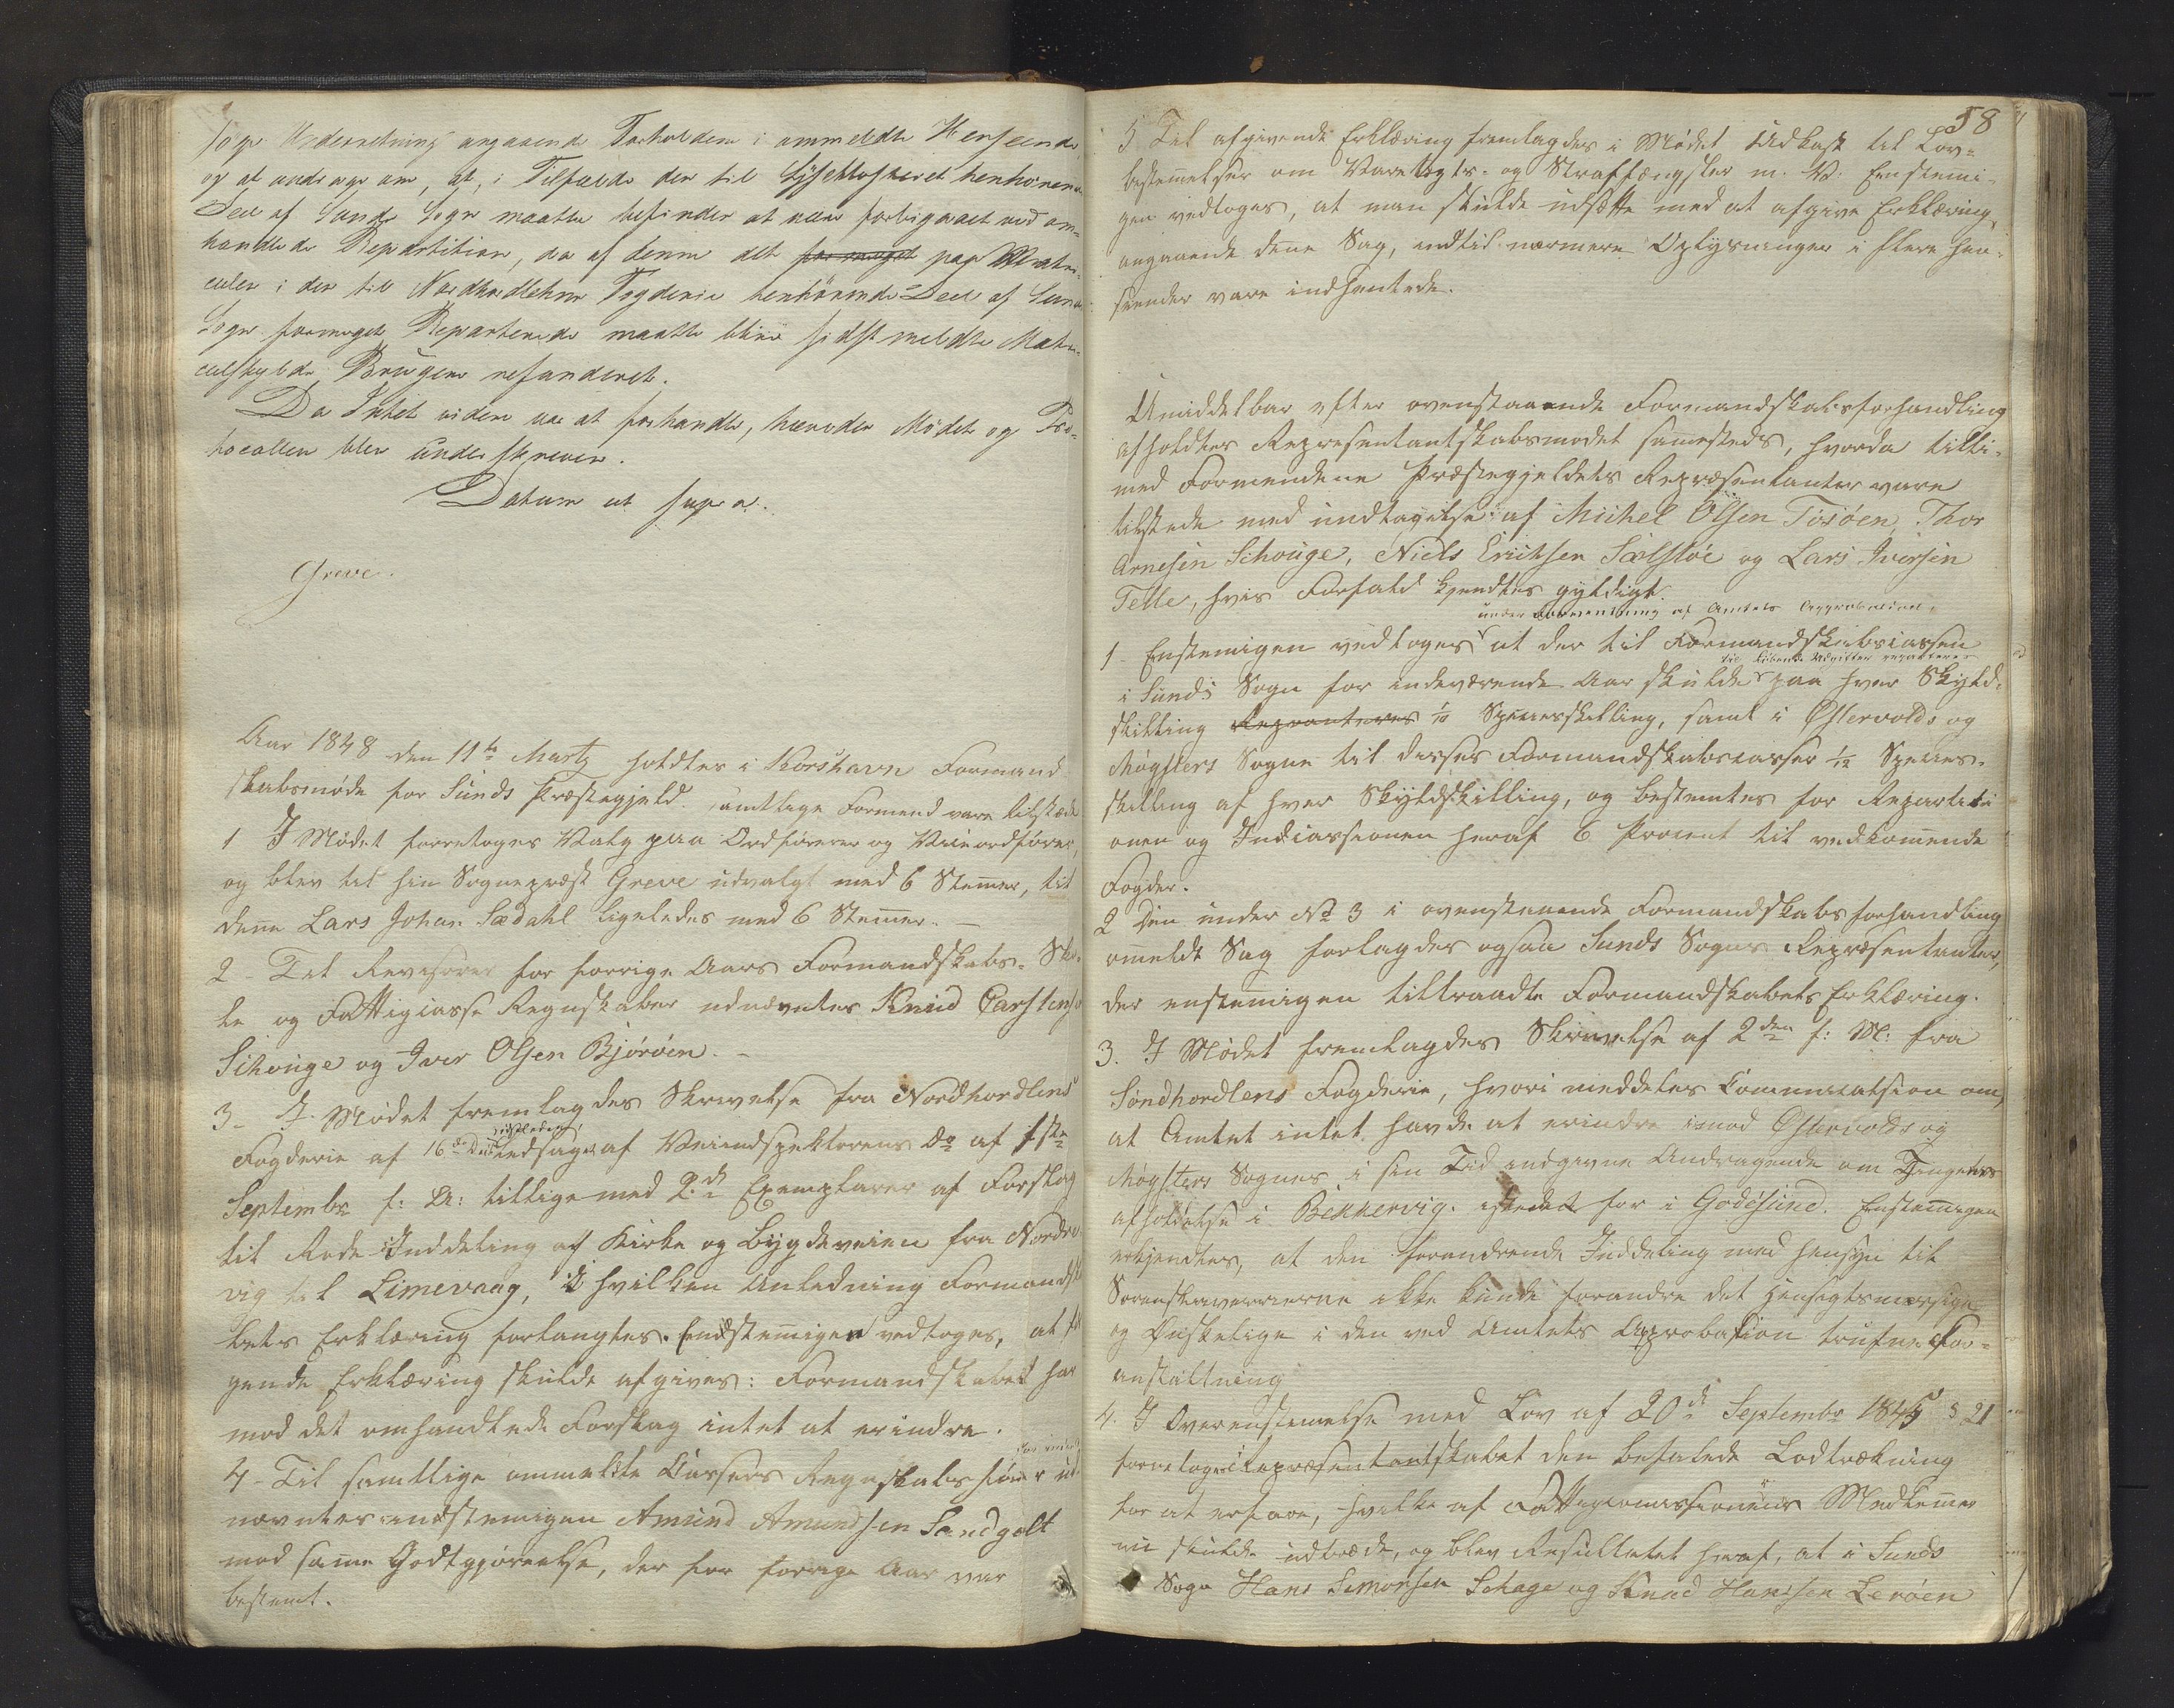 søge Underretning angaaende Forholdene i ommeldte Henseende,
og at andrage om, at, i Tilfælde den til Lyseklosteret henhørende
Deel af Sunds Sogn maatte befindes at være forbigaaet ved om-
handlede Repartition, da af denne det for meget paa Matri-
culen i den til Nordhordlehns Fogderie henhørende Deel af Sunds
Sogn formeget Reparterede maatte blive sidstmeldte Matri-
culskylds Brugere refunderet.
Da Intet videre var at forhandle, hævedes Mødet og Pro-
tocollen blev underskreven.
Datum ut supra.
Greve.
Aar 1848 den 11te Martz holdtes i Korshavn Formand-
skabsmøde for Sunds Præstegjeld. Samtlige Formænd vare tilstæde
1 I Mødet foretoges Valg paa Ordfører og Viceordfører,
og blev til hin Sognepræst Greve udvalgt med 6 Stemer, til
dene Lars Johan. Sædahl ligeledes med 6 Stemer. -
2 Til Revisorer for forrige Aars Formandskabs- Sko-
le og Fattigcasse Regnskaber udnævntes Knud Carstens
Schouge og Iver Olsen Bjørøen. -
3- I Mødet fremlagdes Skrivelse fra Nordhordlens
Fogderie af 16de ledsaget af Veiinspekteurens Do af 1ste
Septembr f: A: tilligemed 2de Exemplarer af Forslag
til Rode Inddeling af Kirke og Bygdeveien fra Nordre-
vig til Limevaag, i hvilken Anledning Formandska
bets Erklæring forlangtes. Eenstemigen vedtoges, at føl
gende Erklæring skulde afgives: Formandskabet har
mod det omhandlede Forslag intet at erindre.
4- Til samtlige ommeldte Cassers Regnskabsfører ud-
nævntes eenstemigen Amund Amundsen Sandgolt
mod same Godtgjørelse, der for forrige Aar var
bestemt.
58
5 Til afgivende Erklæring fremlagdes i Mødet Udkast til Lov-
bestemelser om Varetægts- og Straffængsler m. V. Eenstemi-
gen vedtoges, at man skulde udsætte med at afgive Erklæring,
angaaende dene Sag, indtil nærmere Oplysninger i flere Hen-
seender vare indhentede.
Umiddelbar efter ovenstaaende Formandskabsforhandling
afholdtes Repræsentantskabsmødet samesteds, hvorda tilli-
med Formændene Præstegjeldets Repræsentanter vare
tilstede med undtagelse af Michel Olsen Tøsøen, Thor
Arnesen Schouge, Niels Ericksen Sælsløe og Lars Iversen
Telle, hvis Forfald kjendtes gyldigt.
under Forventning af Amtets Approbation
1- Enstemigen vedtoges at der til Formandskabscassen
til løbende Udgifter reparteres
i Sunds Sogn for indeværende Aar skulde paa hver Skyld-
skilling Reparteres 1/10 Speciesskilling, samt i Østervolds og
Møgsters Sogne til disses Formandskabscasser 1/12 Species-
skilling af hver Skyldskilling, og bestemtes for Repartiti
onen og Indcassionen heraf 6 Procent til vedkomende
Fogder.
2 Den under No 3 i ovenstaaende Formandskabsforhandling
omeldte Sag forelagdes ogsaa Sunds Sogns Repræsentanter,
der enstemigen tiltraadte Formandskabets Erklæring.
3. I Mødet fremlagdes Skrivelse af 2den f: M: fra
Søndhordlens Fogderie, hvori meddeltes Communication om,
at Amtet intet havde at erindre imod Østervolds og
Møgsters Sognes i sin Tid indgivne Andragende om Tingets
afholdelse i Bekkervig istedet for i Godøsund. Enstemigen
erkjendtes, at den forandrende Inddeling med Hensyn til
Sorenskriverierne ikke kunde forandre det Hensigtsmæssige
og Ønskelige i den ved Amtets Approbation trufne For-
anstaltning
4. I Overenstemelse med Lov af 20de Septembr 1845 § 21
foretoges i Repræsentantskabet den befalede Lodtrækning
for at erfare, hvilke af Fattigcomissionens Medlemer
nu skulde udtræde, og blev Resultatet heraf, at i Sunds
Sogn Hans Simonsen Schage og Knud Hanssen Lerøen